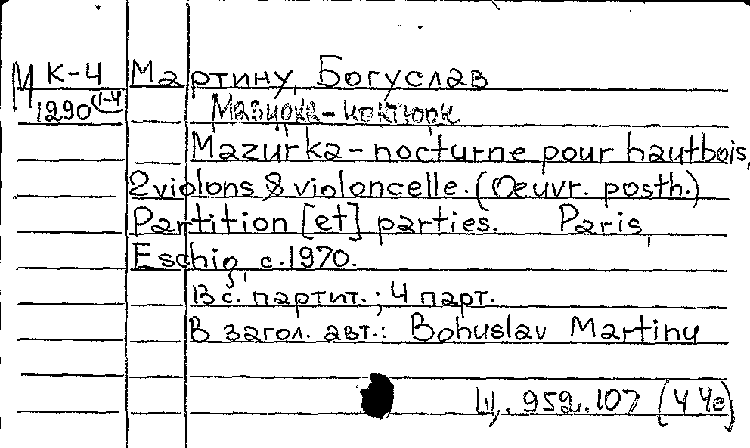 М К-4 Мартину, Богуслав
1290 (1-4 Мазурка-ноктюрн
Mazurka-nocturne pour hautbois,
2 violons & violoncelle. (Oeuvr. posth.)
Partition [et] parties. Paris,
Eschig, c.1970.
8 с. партит.; 4 парт.
В загол. авт.: Bohuslav Martinu
959.107 (4 Чг)